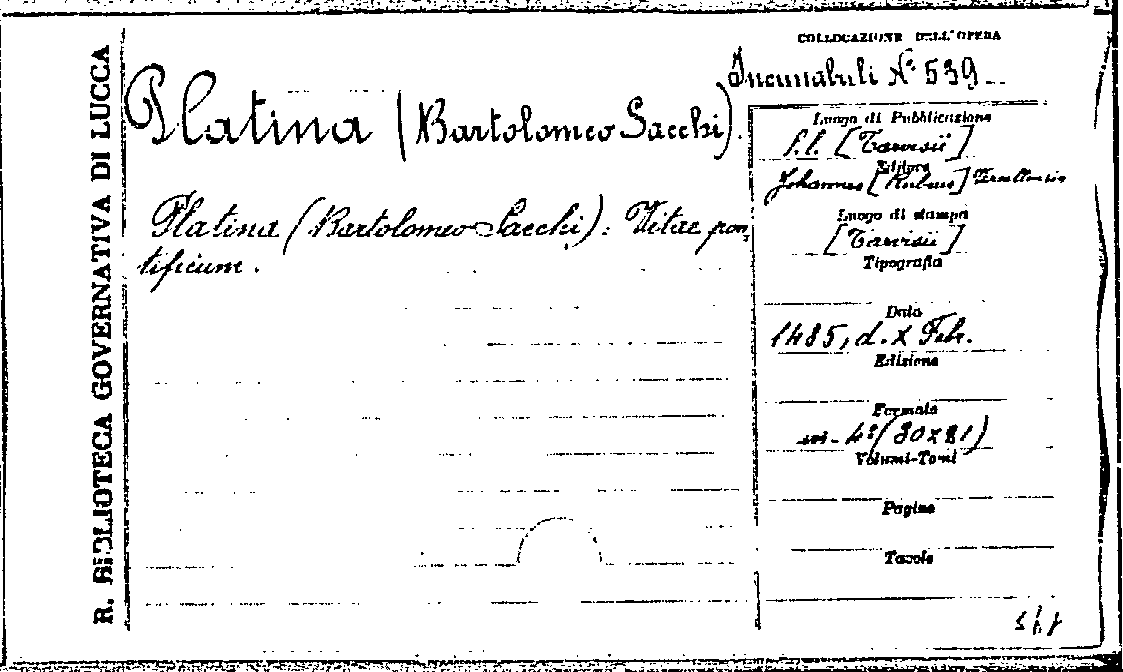 R. BIBLIOTECA GOVERNATIVA DI LUCCA
COLLOCAZIONE DELL'OPERA
Incunabuli N° 539
Platina (Bartolomeo Sacchi).
Platina (Bartolomeo Sacchi): Vitae pon,
tificum.
Luogo di Pubblicazione
s.l. [Tarvisii]
Editore
Johannes [Rubeus] Vercellensis
Luogo di stampa
[Tarvisii]
Tipografia
Data
1485, d. X Febr.
Edizione
Formato
in-4° (30x21)
Volumi-Tomi
Pagine
Tavole